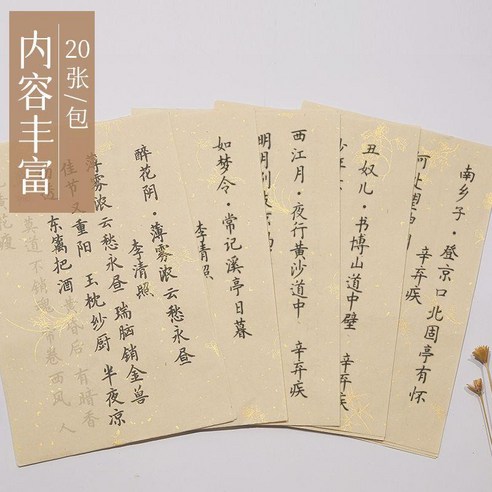 内容丰富
20张/包
南乡子·登京口北固亭有怀
辛弃疾
何处望神
丑奴儿·书博山道中壁
辛弃疾
西江月·夜行黄沙道中
辛弃疾
明月别枝惊
如梦令·常记溪亭日暮
李清照
醉花阴·薄雾浓云愁永昼
李清照
薄雾浓云愁永昼 瑞脑销金兽
佳节又重阳 玉枕纱厨 半夜凉
东篱把酒黄昏后 有暗香
莫道不销魂 帘卷西风 人
黄花瘦